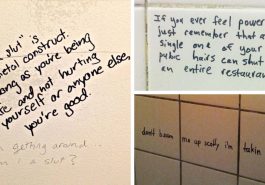 slut" is
etal construct.
ang as you're being
e and not hurting
yourself or anyone else,
you're good
m getting around...
m i a slut?
If you ever feel power
just remember that a
single one of your
pubic hairs can shut
an entire restauran
don't beam me up scotty i'm takin